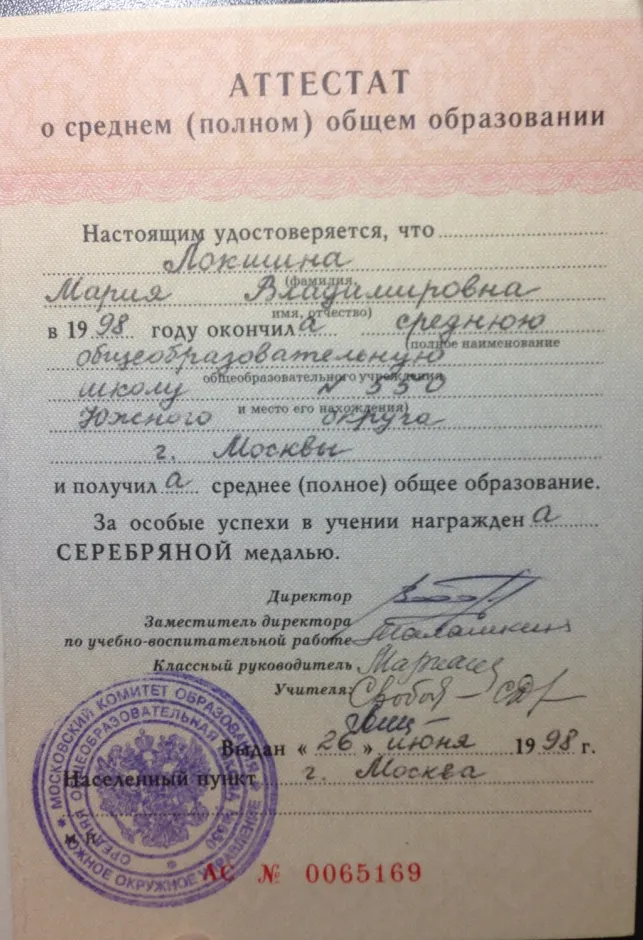 АТТЕСТАТ
о среднем (полном) общем образовании
Настоящим удостоверяется, что
Локшина
(фамилия,
Мария Владимировна
имя, отчество)
в 1998 году окончила среднюю
(полное наименование
общеобразовательную
общеобразовательного учреждения
школу N 550
и место его нахождения)
Южного округа
г. Москвы
и получила среднее (полное) общее образование.
За особые успехи в учении награждена
СЕРЕБРЯНОЙ медалью.
Директор
Заместитель директора
по учебно-воспитательной работе
Классный руководитель
Учителя:
Выдан « 26 » июня 1998 г.
Населенный пункт г. Москва
МОСКОВСКИЙ КОМИТЕТ ОБРАЗОВАНИЯ
ЮЖНОЕ ОКРУЖНОЕ УПРАВЛЕНИЕ
СРЕДНЯЯ ОБЩЕОБРАЗОВАТЕЛЬНАЯ
АС № 0065169